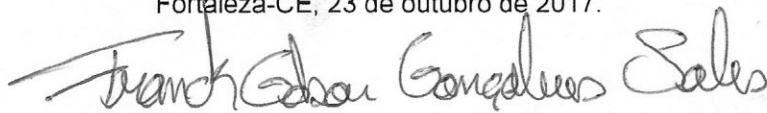 Fortaleza-CE, 23 de outubro de 2017.
Franck Edson Gonçalves Sales